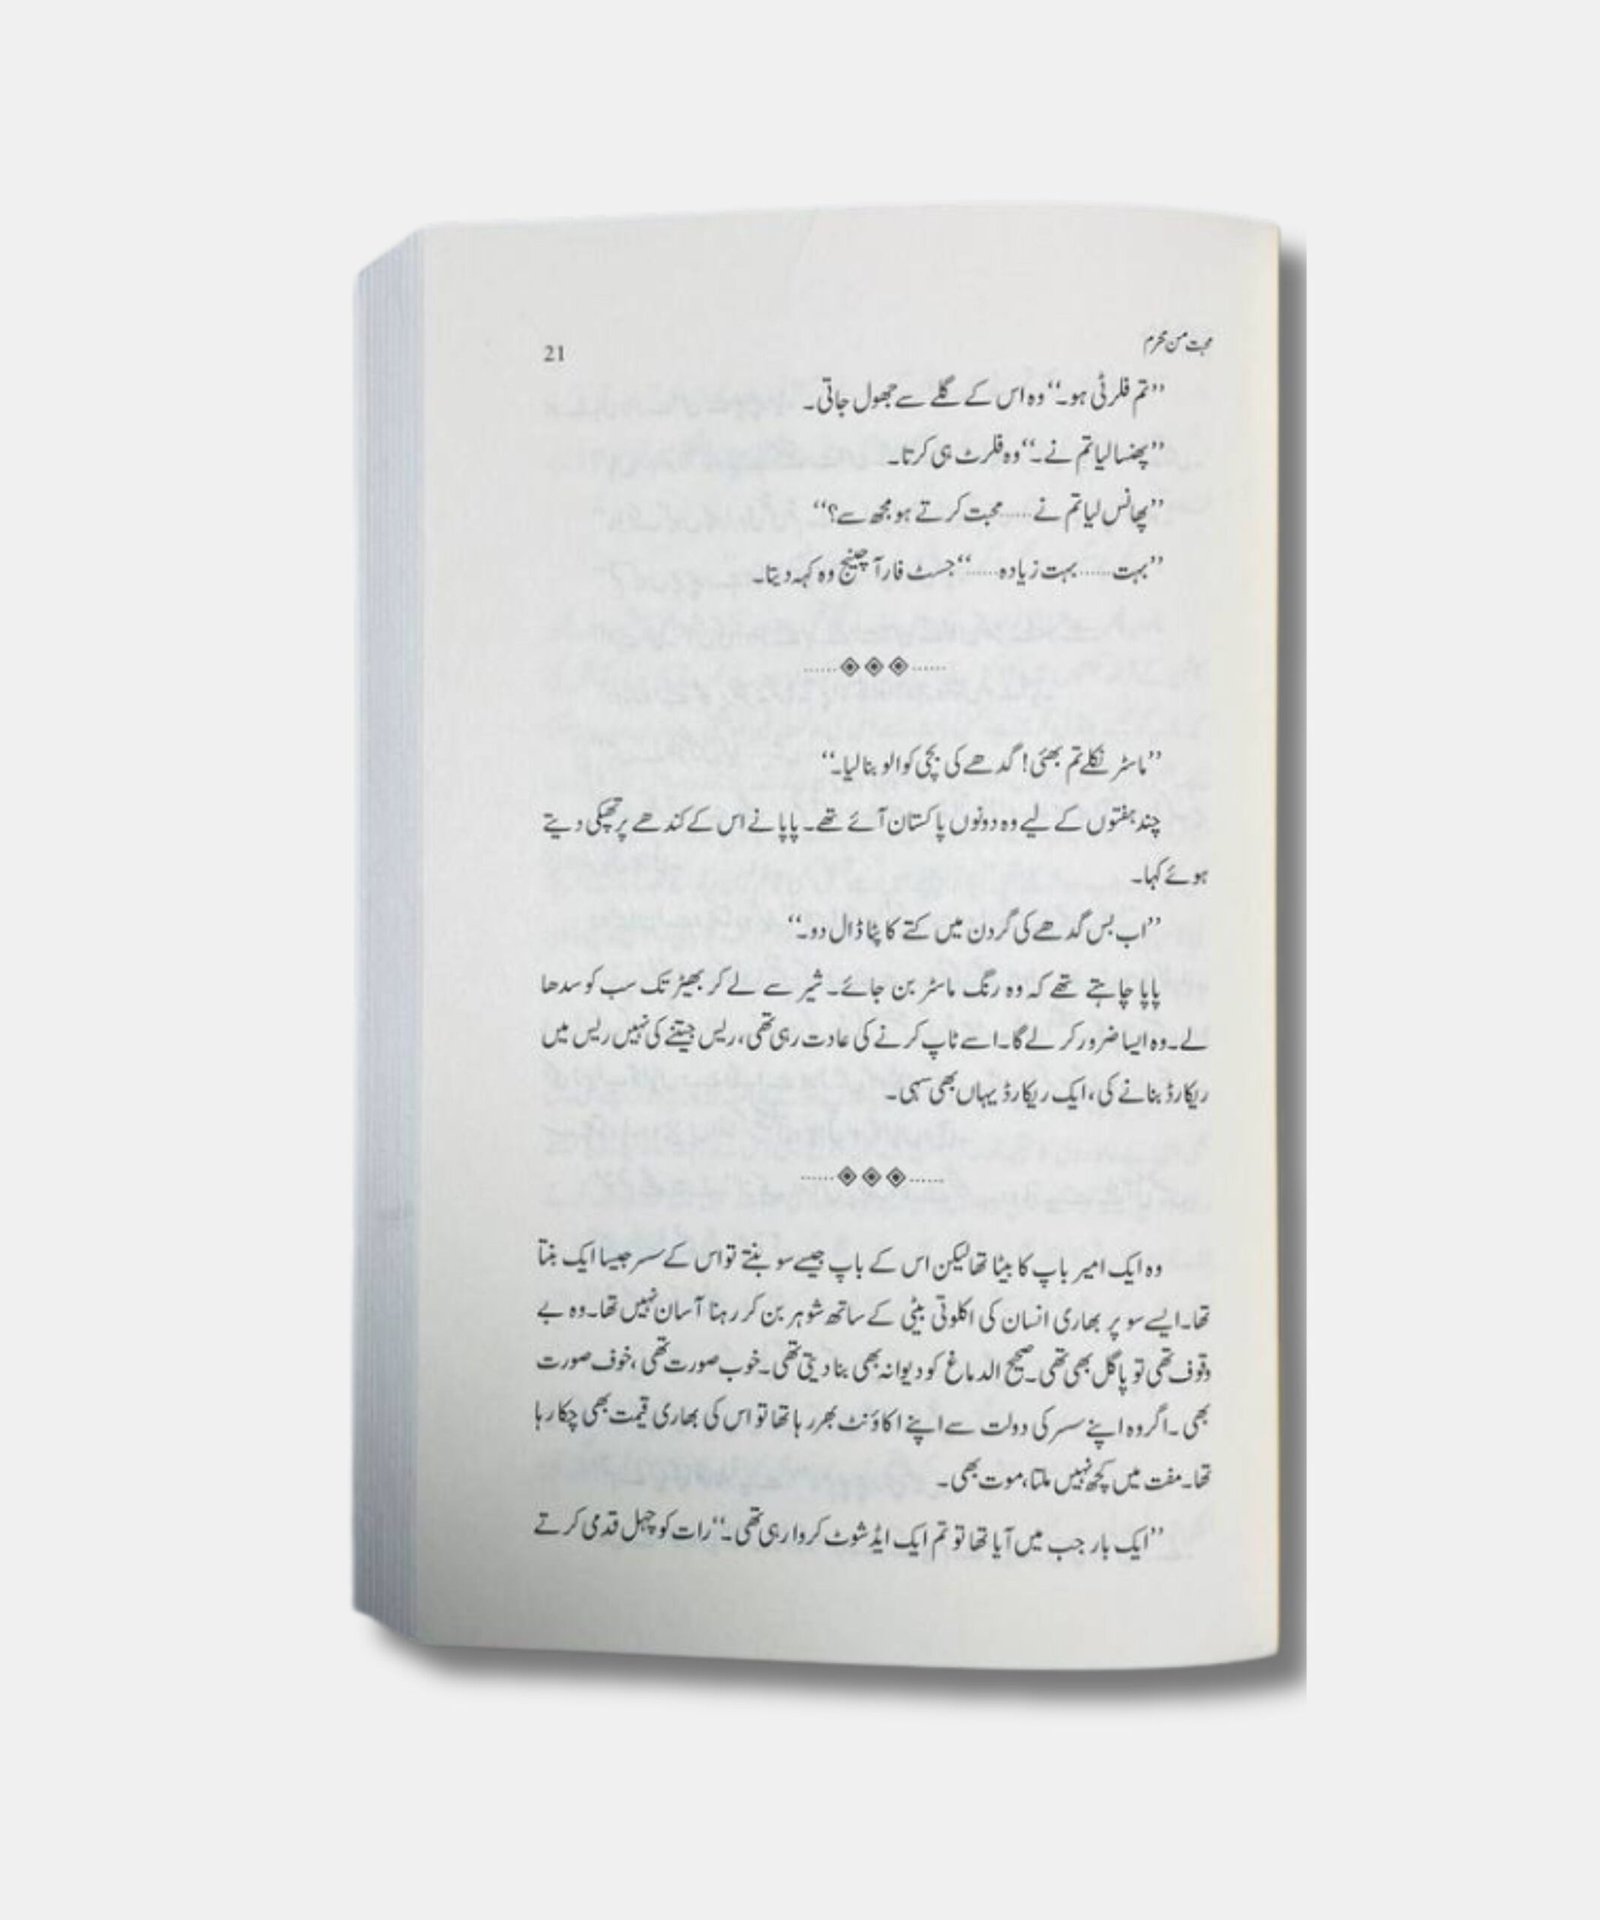 محبت من محرم
21
”تم فلرٹی ہو۔“ وہ اس کے گلے سے جھول جاتی۔
”پھنسا لیا تم نے۔“ وہ فلرٹ ہی کرتا۔
”پھانس لیا تم نے...... محبت کرتے ہو مجھ سے؟“
”بہت...... بہت زیادہ......“ جسٹ فار آ چینج وہ کہہ دیتا۔
”ماسٹر نکلے تم بھئی! گدھے کی بچی کو الو بنا لیا۔“
چند ہفتوں کے لیے وہ دونوں پاکستان آئے تھے۔ پاپا نے اس کے کندھے پر تھپکی دیتے
ہوئے کہا۔
”اب بس گدھے کی گردن میں کتے کا پٹا ڈال دو۔“
پاپا چاہتے تھے کہ وہ رنگ ماسٹر بن جائے۔ شیر سے لے کر بھیڑ تک سب کو سدھا
لے۔ وہ ایسا ضرور کر لے گا۔ اسے ٹاپ کرنے کی عادت رہی تھی، ریس جیتنے کی نہیں ریس میں
ریکارڈ بنانے کی، ایک ریکارڈ یہاں بھی سہی۔
وہ ایک امیر باپ کا بیٹا تھا لیکن اس کے باپ جیسے سو بنتے تو اس کے سسر جیسا ایک بنتا
تھا۔ ایسے سو پر بھاری انسان کی اکلوتی بیٹی کے ساتھ شوہر بن کر رہنا آسان نہیں تھا۔ وہ بے
وقوف تھی تو پاگل بھی تھی۔ صحیح الدماغ کو دیوانہ بھی بنا دیتی تھی۔ خوب صورت تھی، خوف صورت
بھی۔ اگر وہ اپنے سسر کی دولت سے اپنے اکاؤنٹ بھر رہا تھا تو اس کی بھاری قیمت بھی چکا رہا
تھا۔ مفت میں کچھ نہیں ملتا، موت بھی۔
”ایک بار جب میں آیا تھا تو تم ایک ایڈ شوٹ کروا رہی تھی۔“ رات کو چہل قدمی کرتے